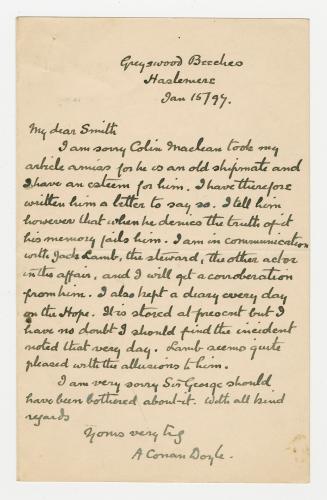 Greyswood Beeches
Haslemere
Jan 15/97.
My dear Smith
I am sorry Colin Maclean took my
article amiss for he is an old shipmate and
I have an esteem for him. I have therefore
written him a letter to say so. I tell him
however that when he denies the truth of it
his memory fails him. I am in communication
with Jack Lamb, the steward, the other actor
in the affair, and I will get a corroboration
from him. I also kept a diary every day
on the Hope. It is stored at present but I
have no doubt I should find the incident
noted that very day. Lamb seems quite
pleased with the allusions to him.
I am very sorry Sir George should
have been bothered about it. With all kind
regards
Yours very try
A Conan Doyle.